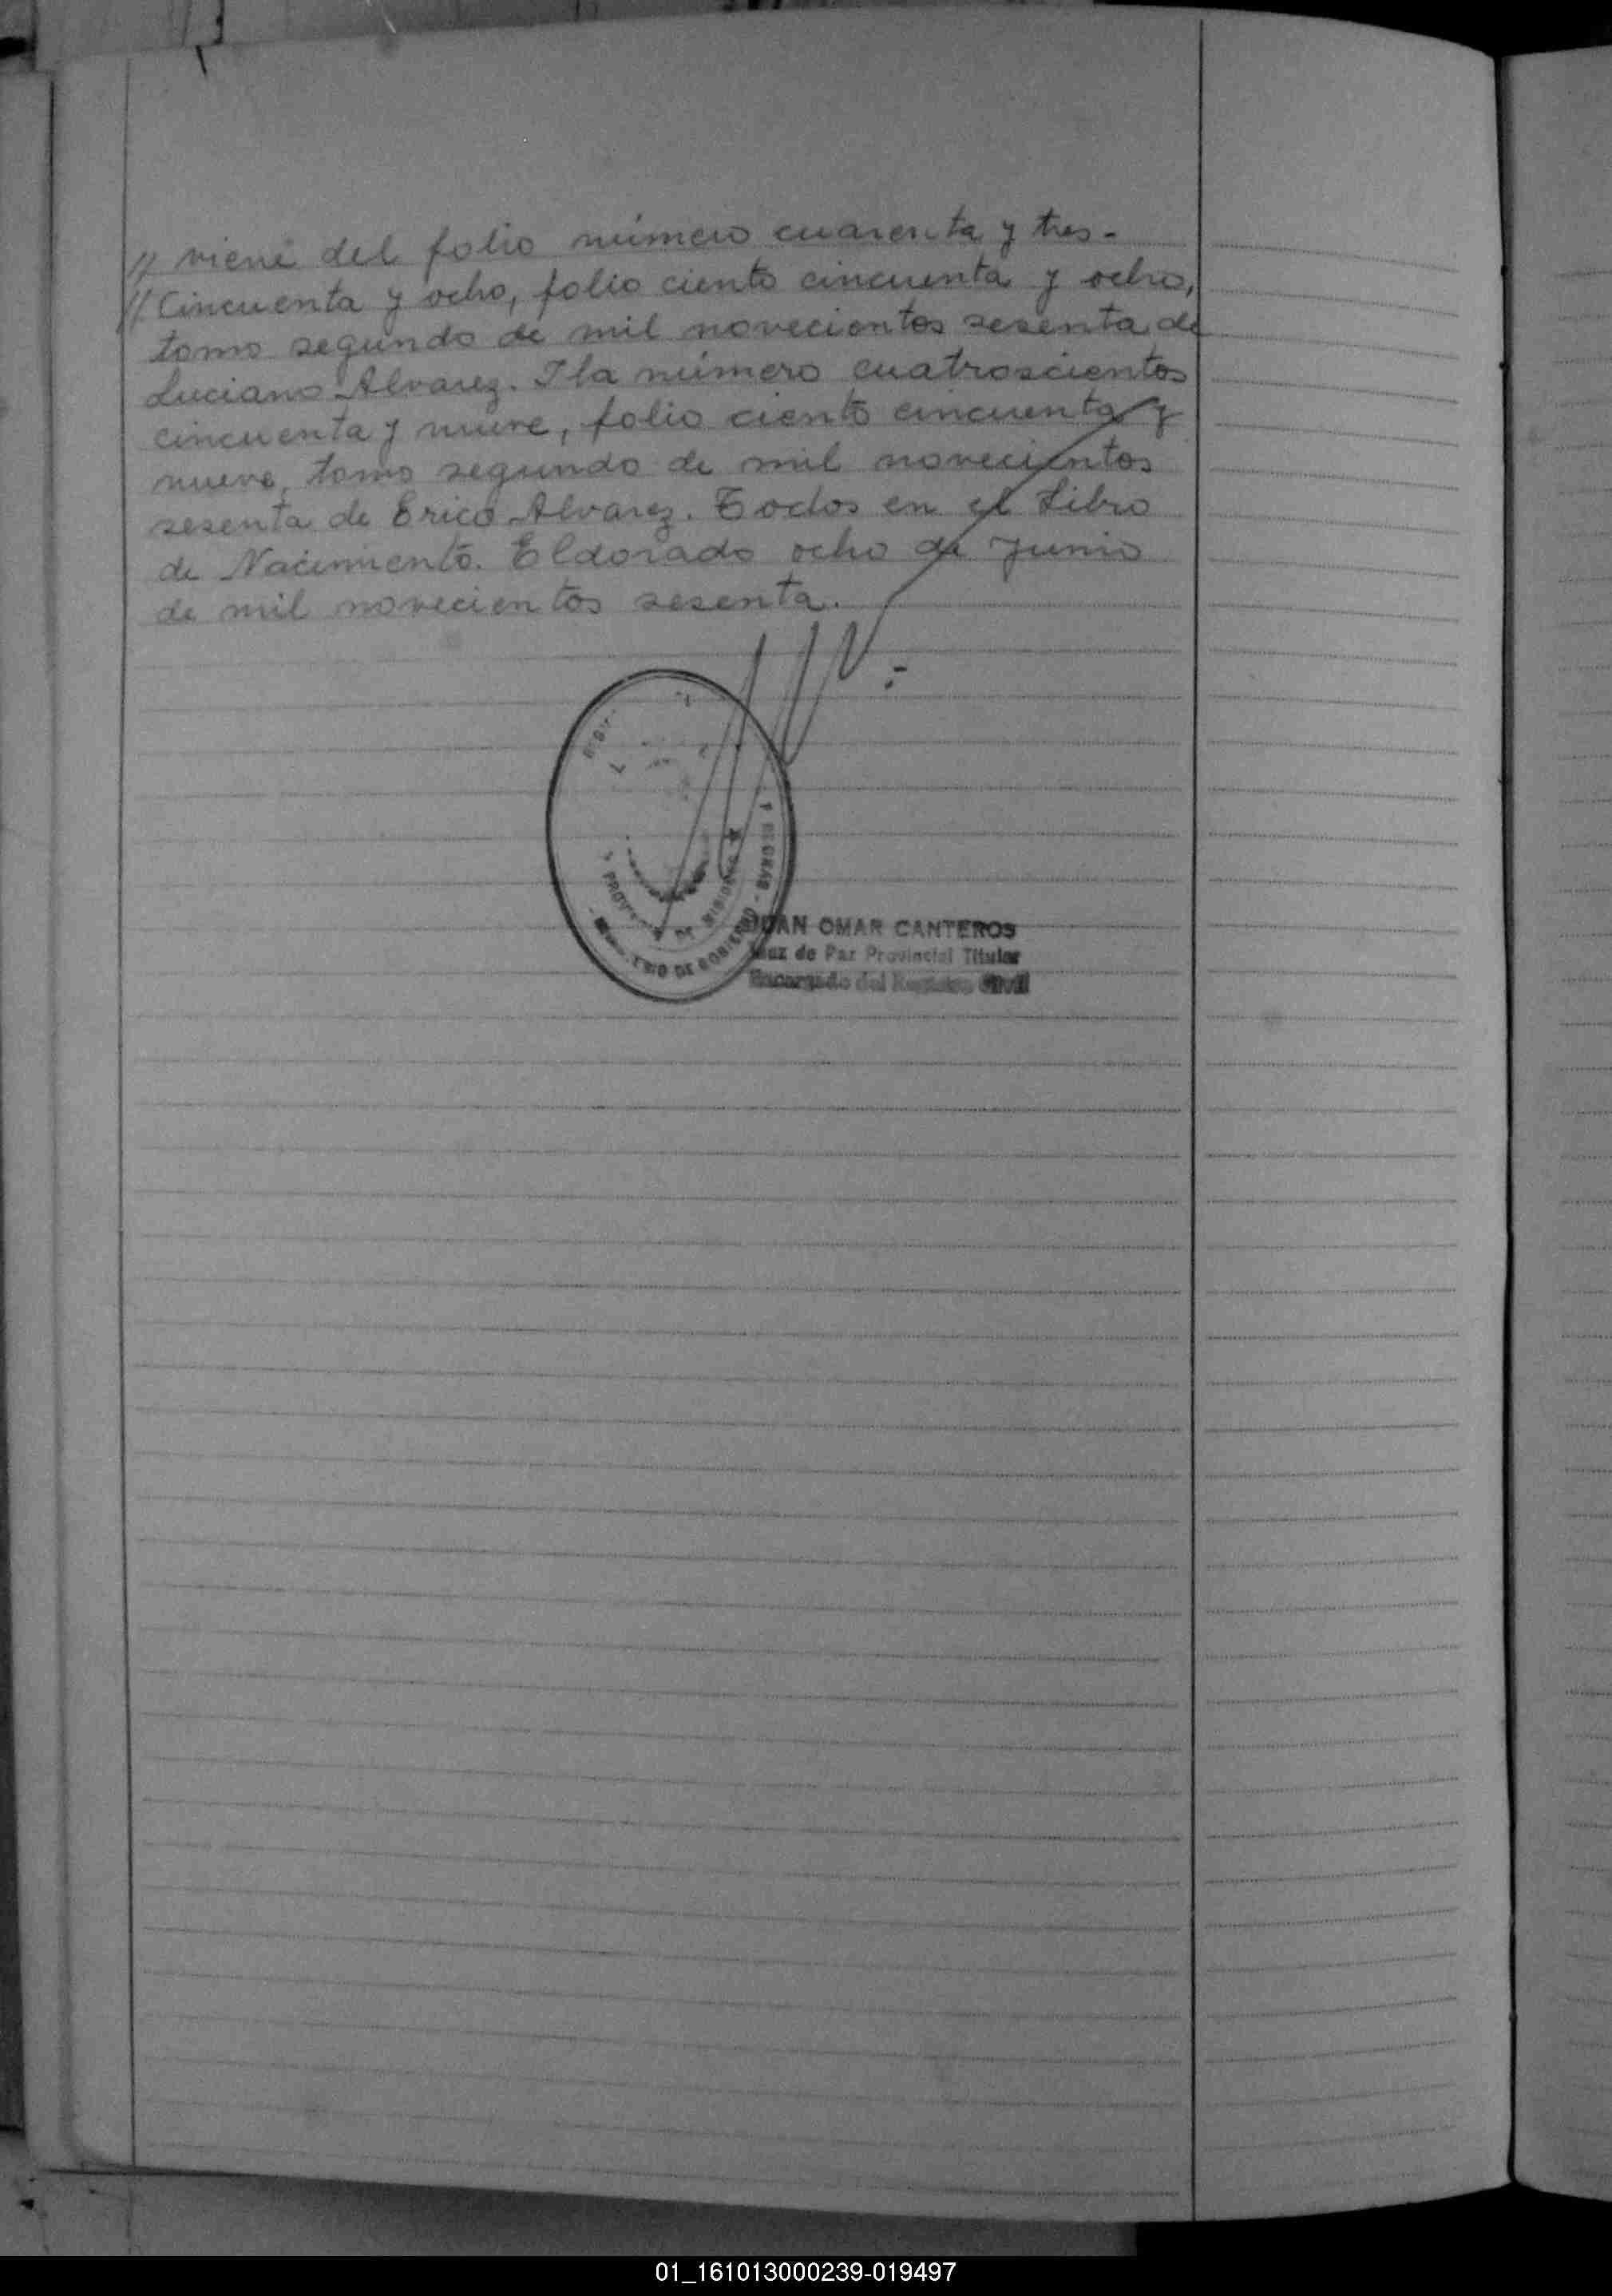 // viene del folio número cuarenta y tres.
// Cincuenta y ocho, folio ciento cincuenta y ocho,
tomo segundo de mil novecientos sesenta de
Luciano Alvarez. I la número cuatroscientos
cincuenta y nueve, folio ciento cincuenta y
nueve, tomo segundo de mil novecientos
sesenta de Erico Alvarez. Todos en el Libro
de Nacimiento. Eldorado ocho de Junio
de mil novecientos sesenta.
DE MISIONES
DE GOBIERNO
JUAN OMAR CANTEROS
Juez de Paz Provincial Titular
Encargado del Registro Civil
01_161013000239-019497